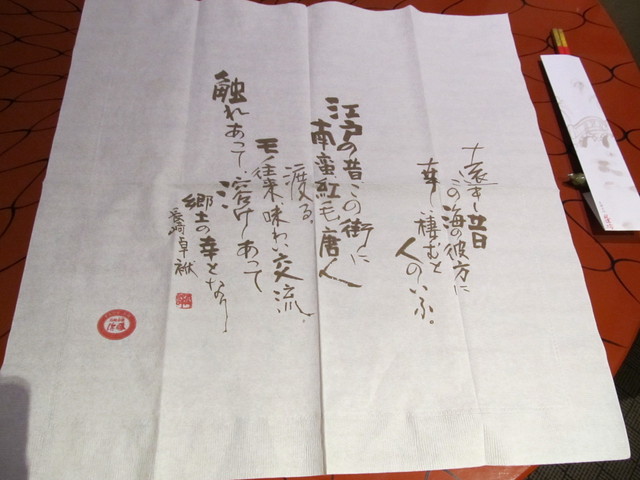 遠き昔
この海の彼方に
幸し棲むと
人のいふ。
江戸の昔、この街に
南蛮、紅毛、唐人
渡る。
モノ往来、味わい交流、
触れあって、溶けあって
郷土の幸となりし
長崎卓袱